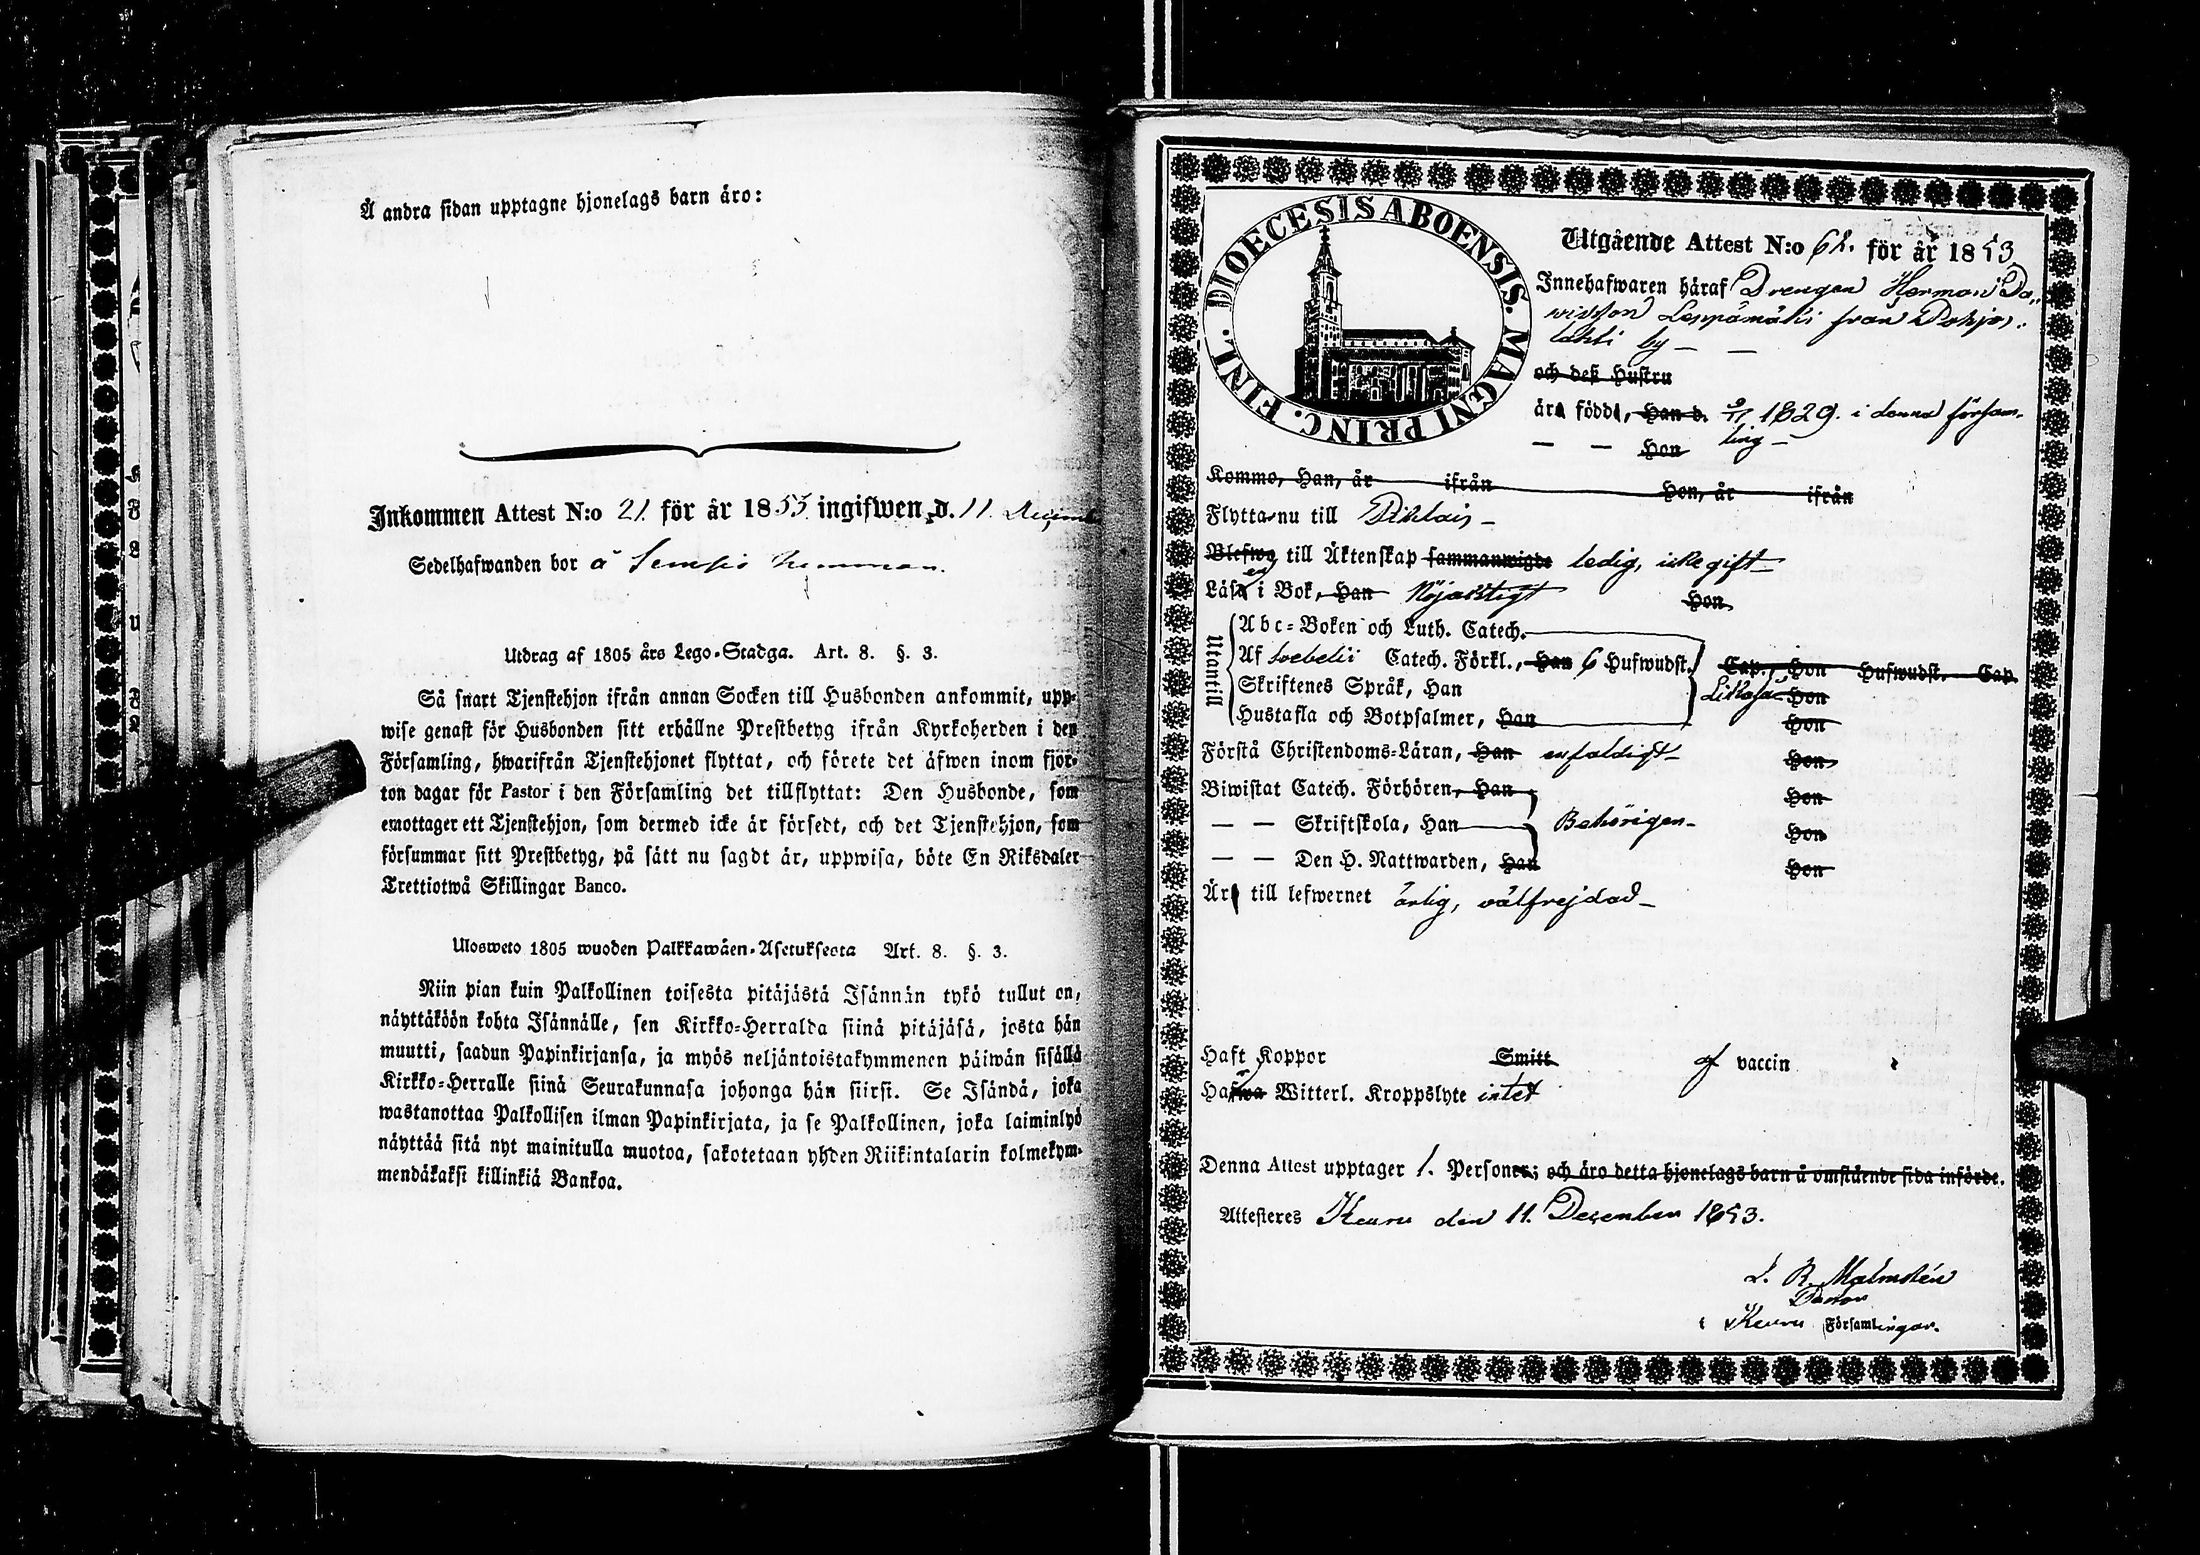 Å andra sidan upptagne hjonelags barn äro:
Inkommen Attest N:o 21. för år 1853. ingifwen d. 11. Decemb
Sedelhafwanden bor å hemman.
Utdrag af 1805 års Lego-Stadga. Art. 8. §. 3.
Så snart Tjenstehjon ifrån annan Socken till Husbonden ankommit, upp-
wise genast för Husbonden sitt erhållne Prestbetyg ifrån Kyrkoherden i den
Församling, hwarifrån Tjenstehjonet flyttat, och förete det äfwen inom fjor-
ton dagar för Pastor i den Församling det tillflyttat: Den Husbonde, som
emottager ett Tjenstehjon, som dermed icke är försedt, och det Tjenstehjon, som
försummar sitt Prestbetyg, på sätt nu sagdt är, uppwisa, böte En Riksdaler
Trettiotwå Skillingar Banco.
Ulosweto 1805 wuoden Palkkawäen-Asetuksesta Art. 8. §. 3.
Niin pian kuin Palkollinen toisesta pitäjästä Isännän tykö tullut on,
näyttäköön kohta Isännälle, sen Kirkko-Herralda siinä pitäjäsä, josta hän
muutti, saadun Papinkirjansa, ja myös neljäntoistakymmenen päiwän sisällä
Kirkko-Herralle siinä Seurakunnasa johonga hän siirsi. Se Isändä, joka
wastanottaa Palkollisen ilman Papinkirjata, ja se Palkollinen, joka laiminlyö
näyttää sitä nyt mainitulla muotoa, sakotetaan yhden Riikintalarin kolmekym-
mendäkaksi killinkiä Bankoa.
DIOECESIS ABOENSIS. MAGNI PRINC. FINL.
Utgående Attest N:o 62. för år 1853
Innehafwaren häraf Drengen Herman Da-
vidson Leppämäki från Pohjos-
lahti by
och deß Hustru
äro födde, Han d. 1829. i denna försam-
Hon ling
Kommo, Han, år ifrån Hon, år ifrån
Flytta nu till Pihlais
Blefwo till Äktenskap sammanwigde ledig, icke gift
Läsa i Bok, Han Nöjaktigt Hon
Utantill
Abc-Boken och Luth. Catech.
Af Svebelii Catech. Förkl., Han 6 Hufwudst. Cap., Hon Hufwudst. Cap.
Skriftenes Språk, Han Likaså Hon
Hustafla och Botpsalmer, Han Hon
Förstå Christendoms-Läran, Han enfaldigt Hon
Biwistat Catech. Förhören, Han Hon
— — Skriftskola, Han Behörigen Hon
— — Den H. Nattwarden, Han Hon
Äro till lefwernet ärlig, välfrejdad
Haft Koppor Smitt af vaccin
Hafwa Witterl. Kroppslyte intet
Denna Attest upptager 1. Personer; och äro detta hjonelags barn å omstående sida införde.
Attesteres Keuru den 11. December 1853.
L. R. Malmstén
Pastor
i Keuru Församlingar.